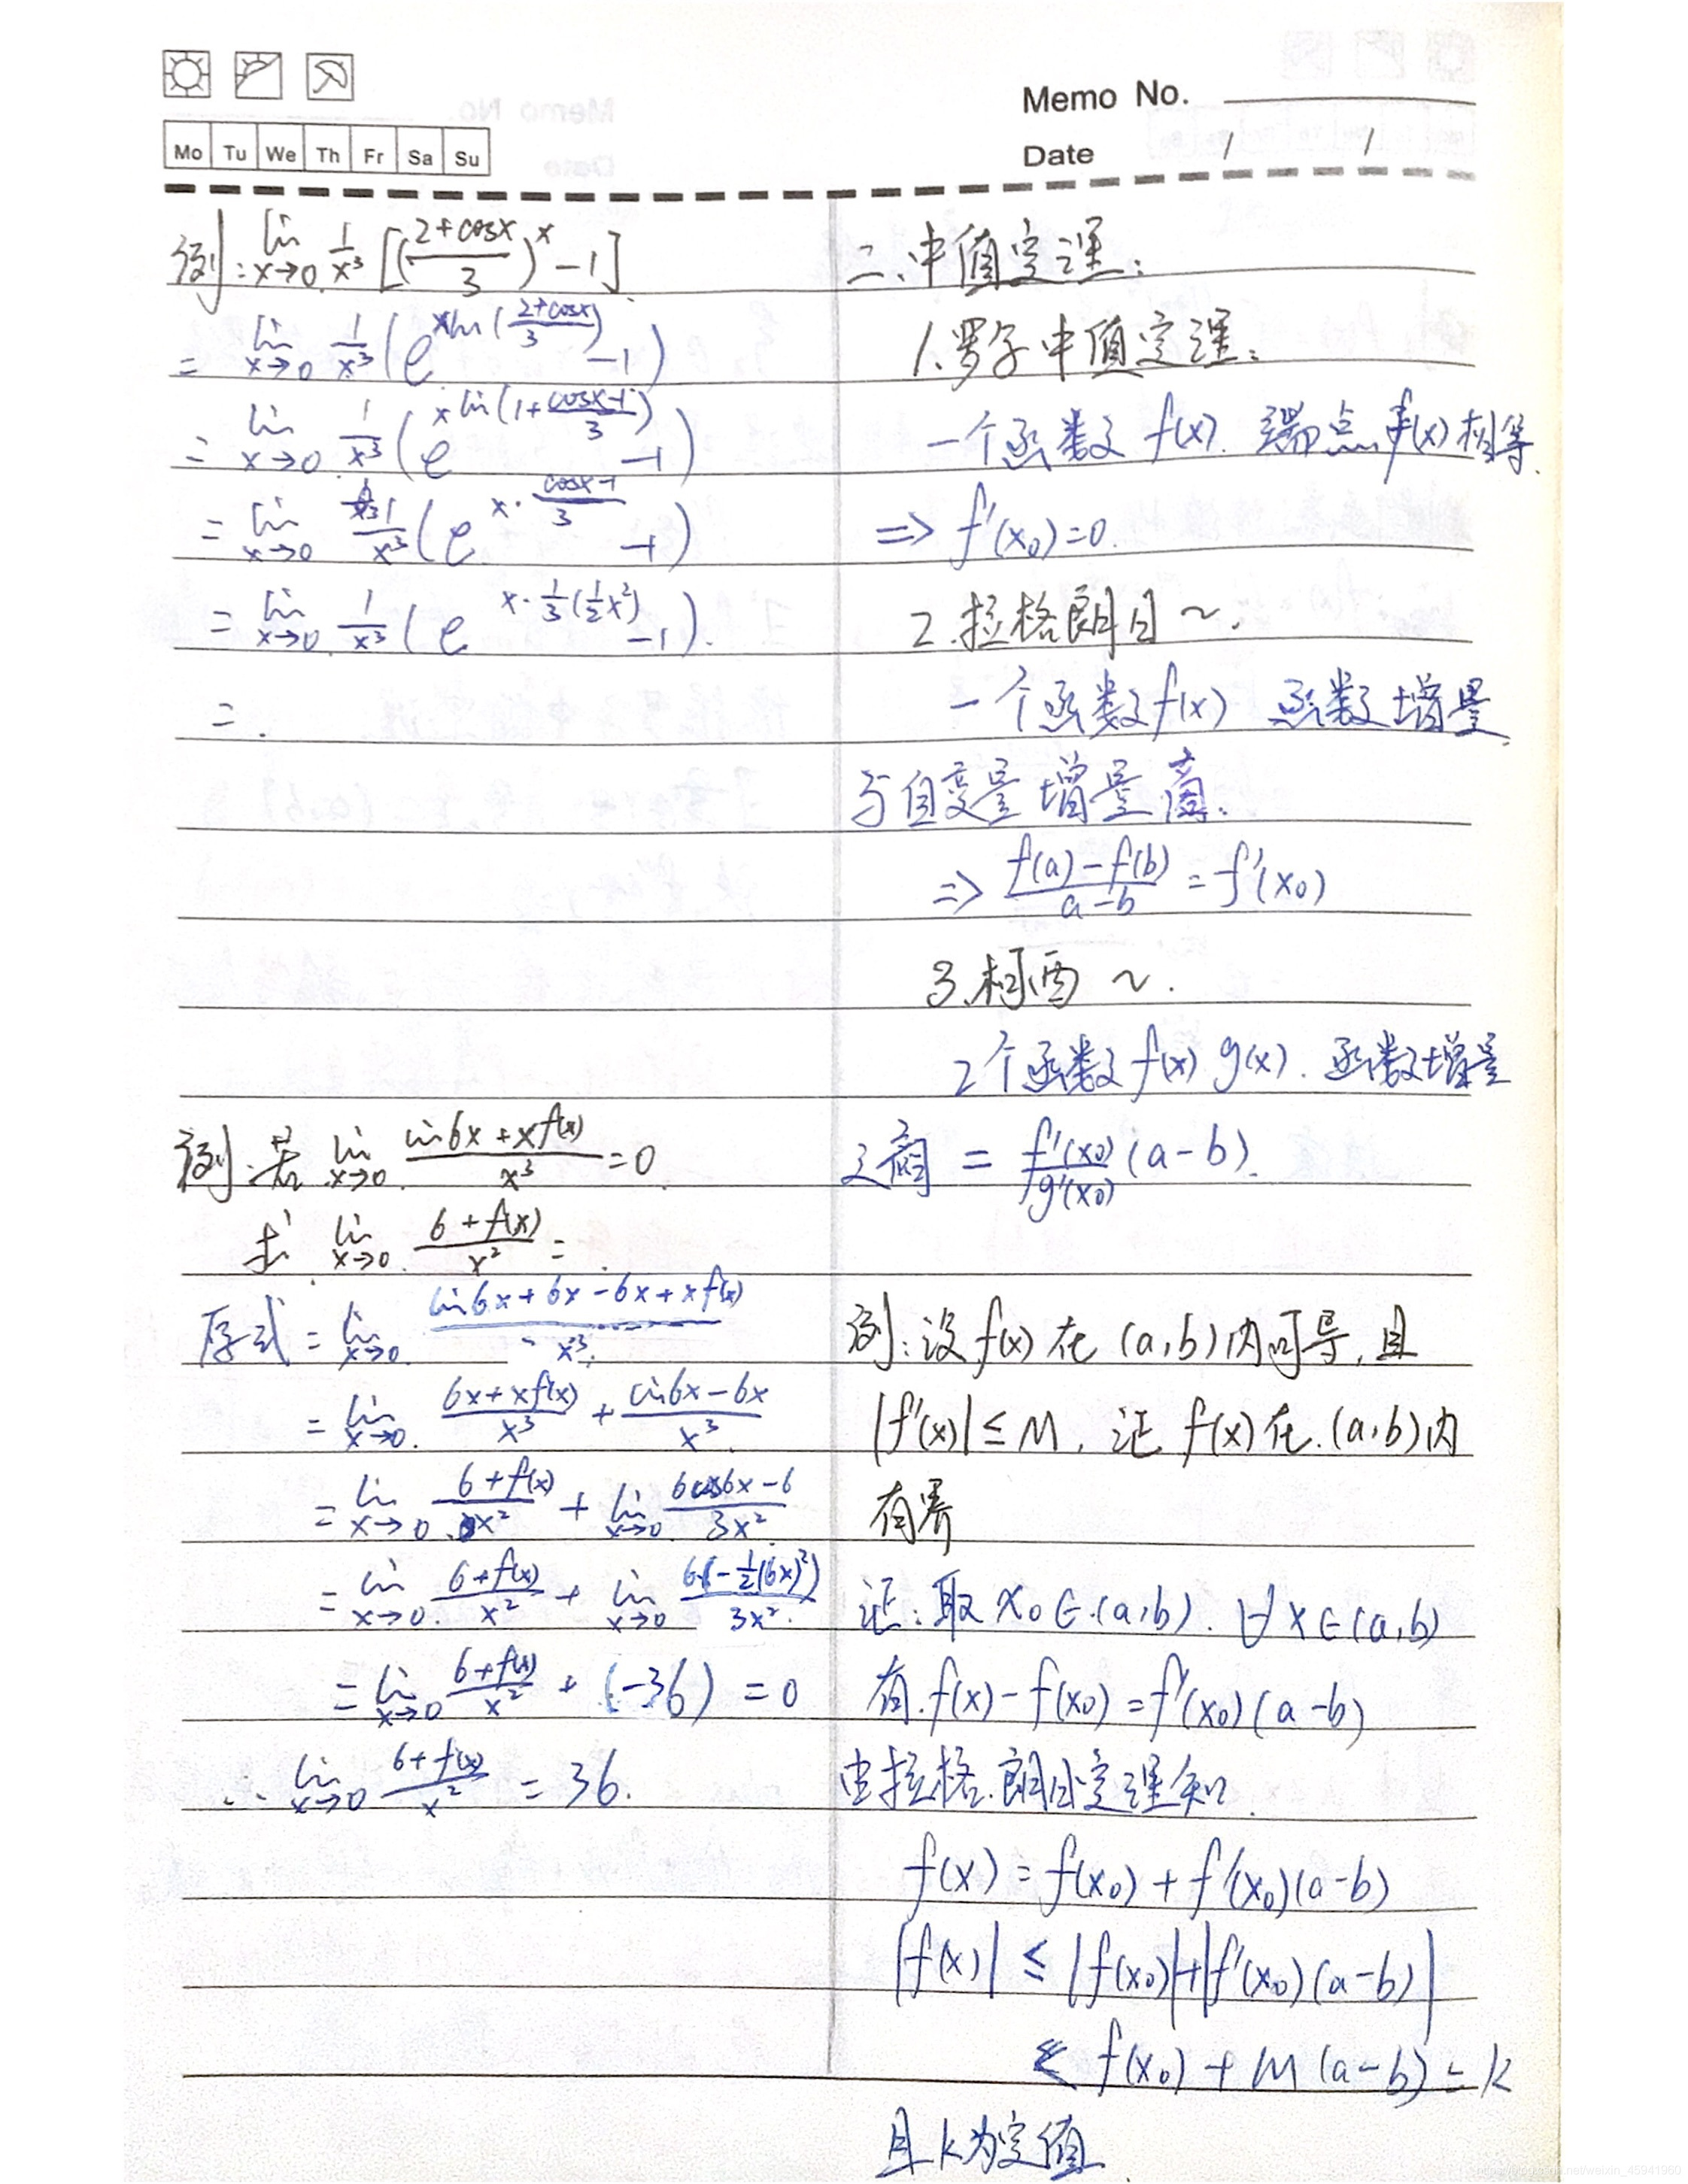 Memo No.
Mo Tu We Th Fr Sa Su
Date / /
例: lim x→0 1/x³ [((2+cosx)/3)^x -1]
= lim x→0 1/x³ (e^(xln((2+cosx)/3)) -1)
= lim x→0 1/x³ (e^(xln(1+(cosx-1)/3)) -1)
= lim x→0 1/x³ (e^(x·(cosx-1)/3) -1)
= lim x→0 1/x³ (e^(x·1/3(1/2x²)) -1).
=
例:若 lim x→0 (sin6x+xf(x))/x³ =0
求 lim x→0 (6+f(x))/x² =
原式 = lim x→0 (sin6x+6x-6x+xf(x))/x³
= lim x→0 (6x+xf(x))/x³ + (sin6x-6x)/x³
= lim x→0 (6+f(x))/x² + lim x→0 (6cos6x-6)/3x²
= lim x→0 (6+f(x))/x² + lim x→0 6·(-1/2(6x)²)/3x²
= lim x→0 (6+f(x))/x² + (-36) = 0
∴ lim x→0 (6+f(x))/x² = 36.
二.中值定理:
1.罗尔中值定理:
一个函数 f(x). 端点 f(x) 相等.
=> f'(x₀)=0.
2.拉格朗日 ~.
一个函数f(x) 函数增量
与自变量增量商.
=> (f(a)-f(b))/(a-b) = f'(x₀)
3.柯西 ~.
2个函数 f(x) g(x). 函数增量
之商 = f'(x₀)/g'(x₀) (a-b).
例:设 f(x) 在 (a,b)内可导,且
|f'(x)|≤M, 证 f(x)在.(a,b)内
有界
证:取 x₀∈(a,b). ∀x∈(a,b)
有.f(x)-f(x₀)=f'(x₀)(a-b)
由拉格朗日定理知.
f(x) = f(x₀) + f'(x₀)(a-b)
|f(x)| ≤ |f(x₀)|+|f'(x₀)(a-b)|
≤ f(x₀) + M(a-b) = k
且k为定值